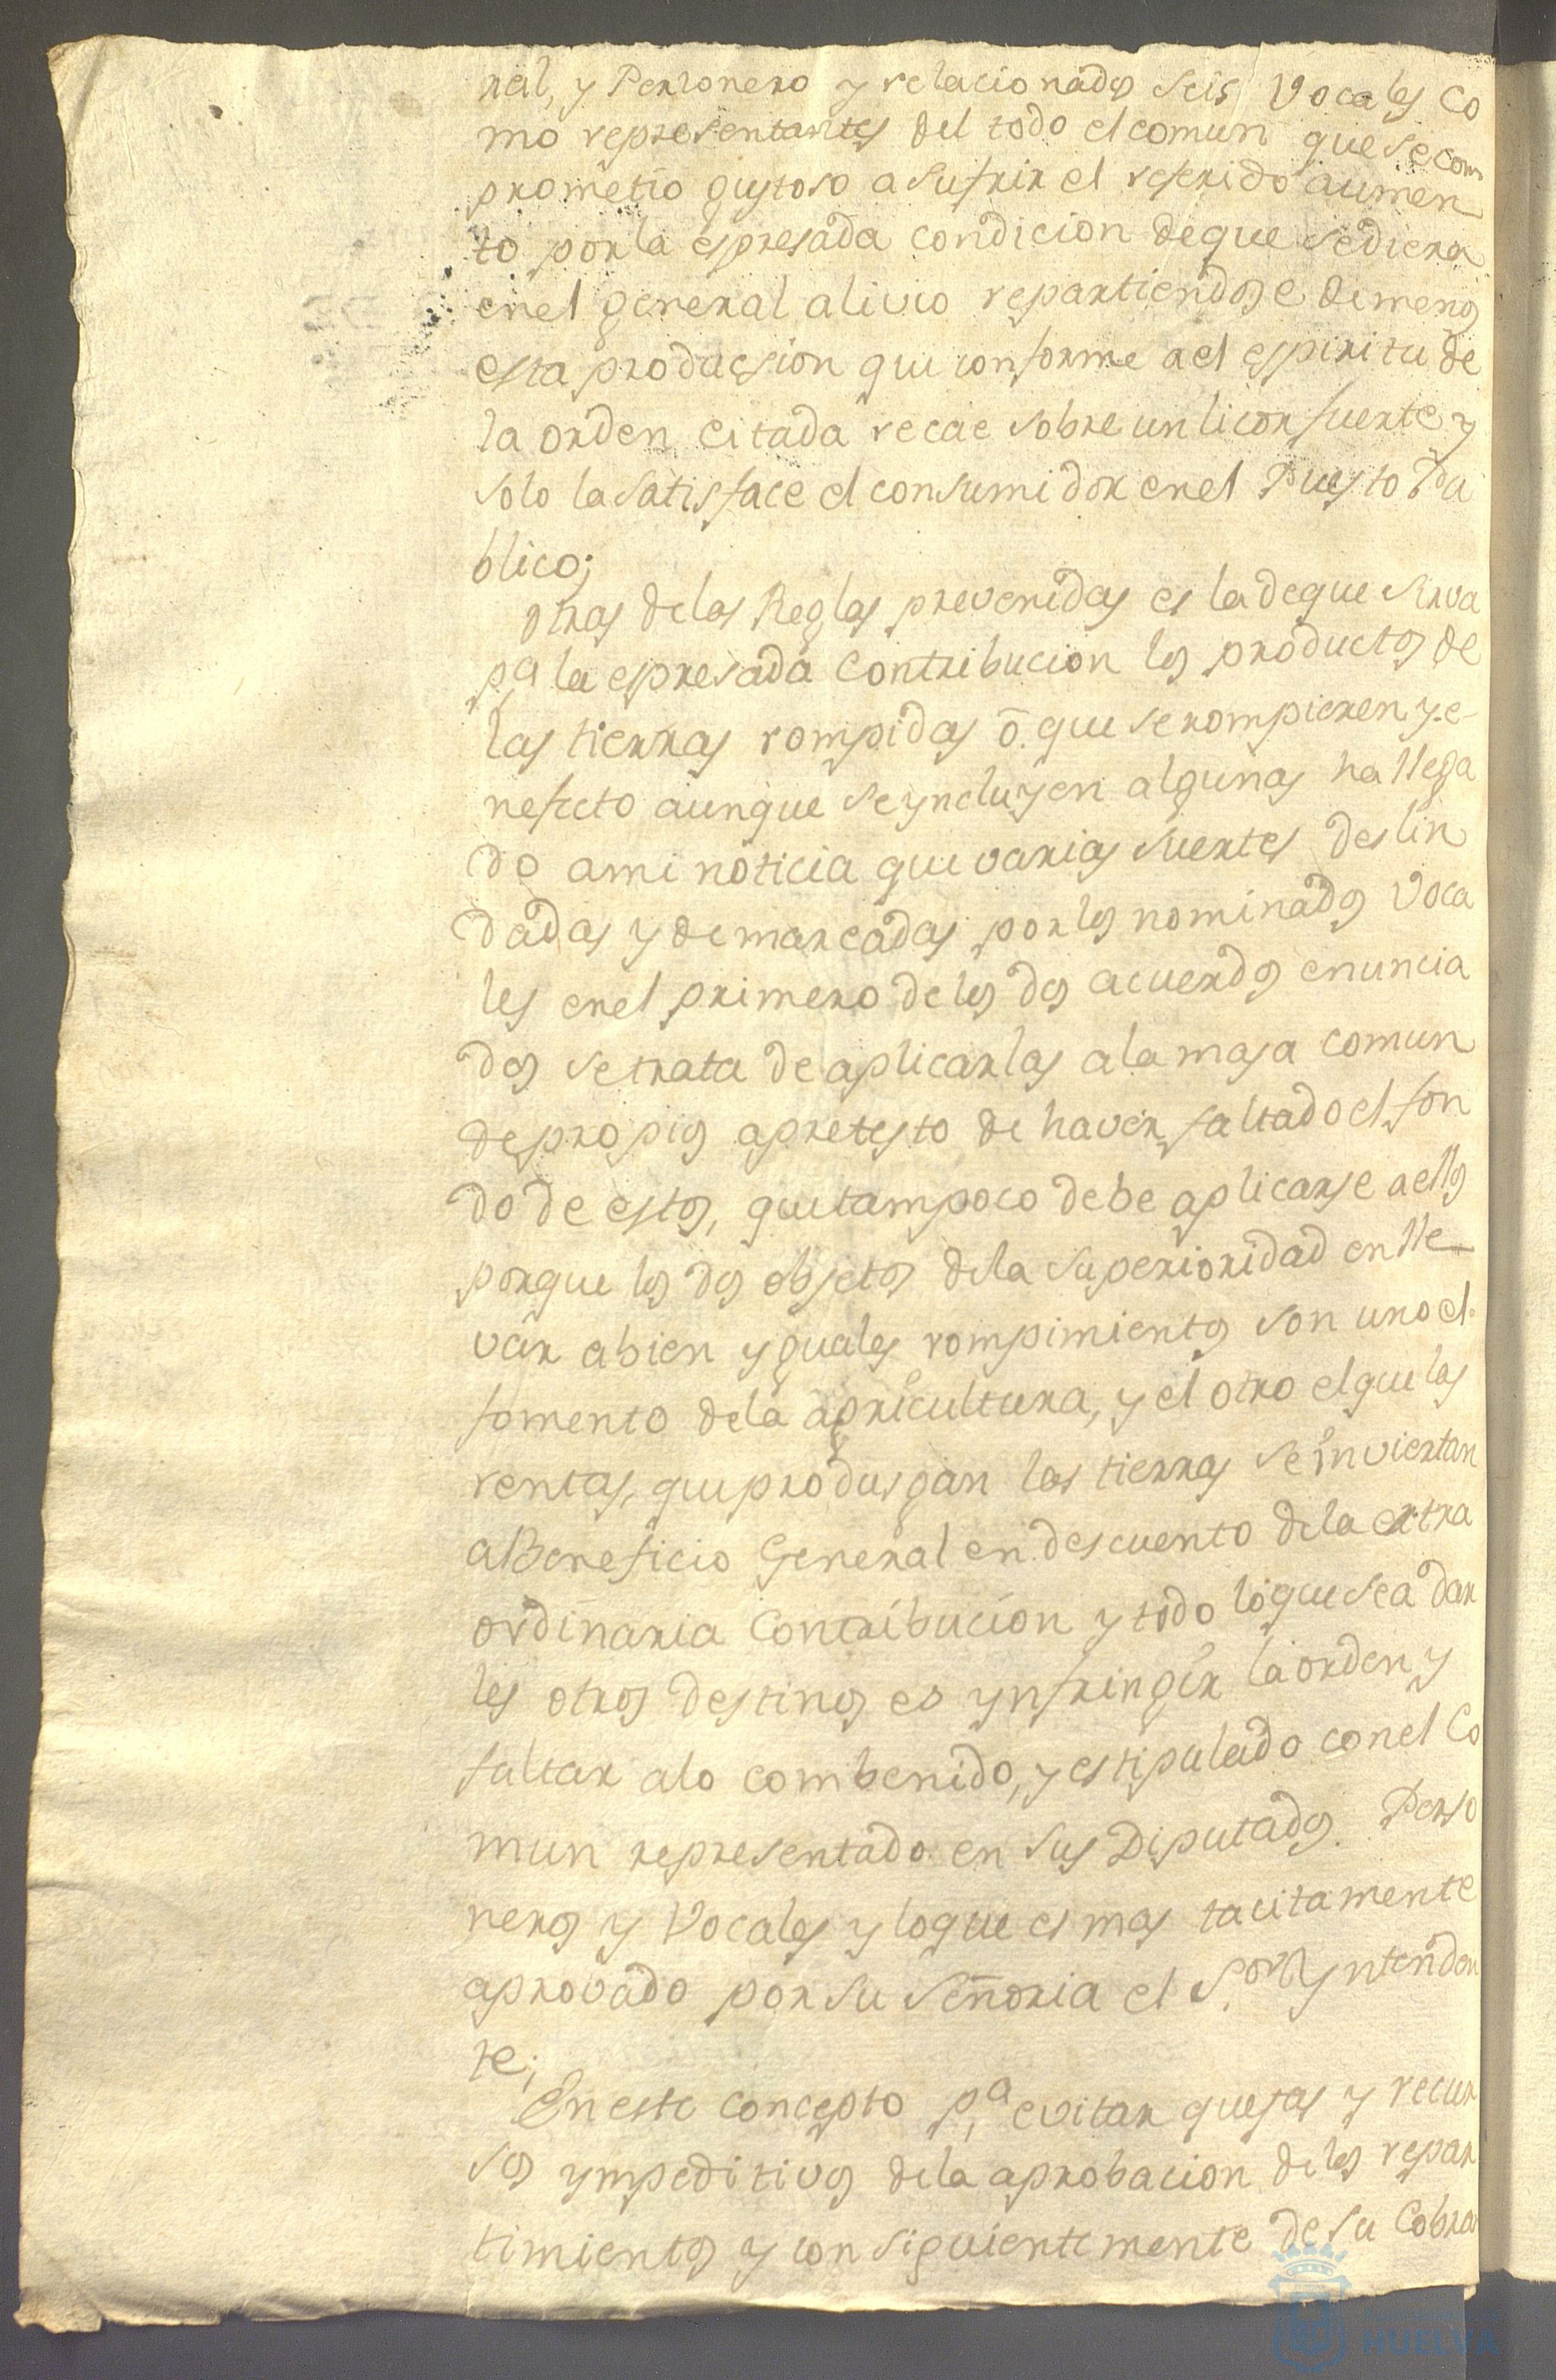 ral, y Personero y relacionados seis Vocales Co
mo representantes del todo el comun que se com
prometio gustoso a sufrir el referido aumen
to por la espresada condicion de que se diera
en el general alivio repartiendose de menos
esta producsion que conforme a el espiritu de
la orden citada recae sobre un licor fuerte y
solo la satisface el consumidor en el Puesto Pu
blico;
Otras de las Reglas prevenidas es la de que sirva
pª la espresada Contribucion los productos de
las tierras rompidas ō que se rompieren y e
nefecto aunque se yncluyen algunas ha llega
do a mi noticia que varias suertes deslin
dadas y demarcadas por los nominados Voca
les en el primero de los dos acuerdos enuncia
dos se trata de aplicarlas a la masa comun
de propios apretesto de haver faltado el fon
do de estos, que tampoco debe aplicarse a ellos
porque los dos objetos de la superioridad en lle
var a bien yguales rompimientos son uno el
fomento de la agricultura, y el otro el que las
rentas, que produsgan las tierras se inviertan
a Beneficio General en descuento de la extra
ordinaria Contribucion y todo lo que sea dar
les otros destinos es ynfringir la orden y
faltar a lo combenido, y estipulado con el Co
mun representado en sus Diputados. Perso
neros y Vocales y lo que es mas tacitamente
aprovado por su señoria el S.or Yntenden
te;
En este concepto pª evitar quejas y recur
sos ympeditivos de la aprobacion de los repar
timientos y consiguientemente de su Cobra
HUELVA